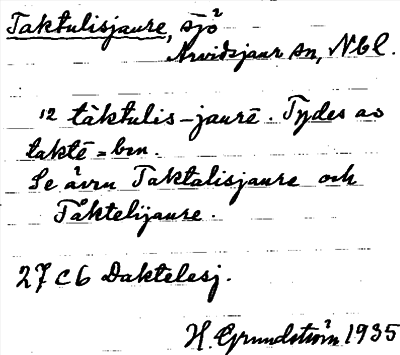 Taktulisjaure, sjö
Arvidsjaur sn, Nbl.
12 tàktulis-jaurē. Tydes av
taktē = ben.
Se även Taktalisjaure och
Taktelijaure.
27 C 6 Daktelesj.
H. Grundström 1935